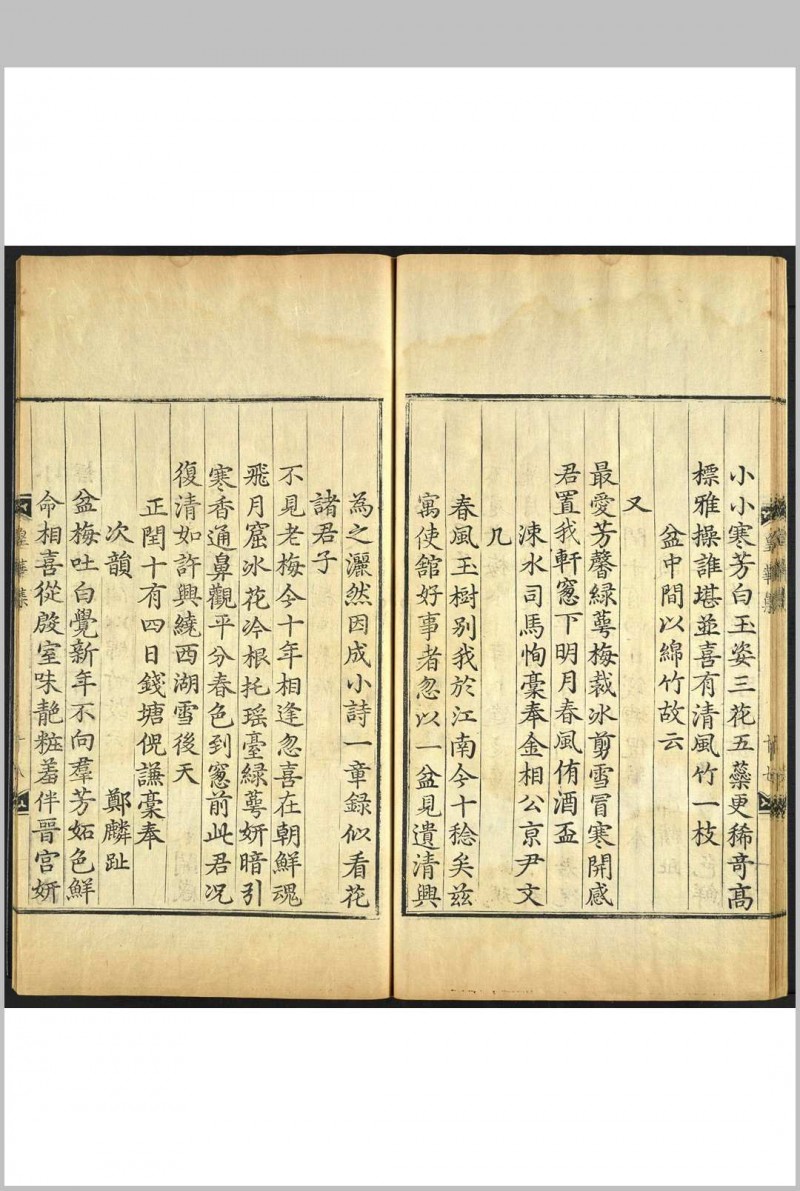 小小寒芳白玉姿三花五蘂更稀奇高
標雅操誰堪並喜有清風竹一枝
盆中間以綿竹故云
又
最愛芳馨綠萼梅裁冰剪雪冒寒開感
君置我軒窻下明月春風侑酒盃
涑水司馬恂藁奉金相公京尹文
几
春風玉樹别我於江南今十稔矣兹
寓使舘好事者忽以一盆見遺清興
為之灑然因成小詩一章録似看花
諸君子
不見老梅今十年相逢忽喜在朝鮮魂
飛月窟冰花冷根托瑶臺綠萼妍暗引
寒香通鼻觀平分春色到窻前此君况
復清如許興繞西湖雪後天
正閏十有四日錢塘倪謙藁奉
次韻 鄭麟趾
盆梅吐白覺新年不向羣芳妬色鮮
命相喜從殷室味靘粧羞伴晋宫妍
皇華集